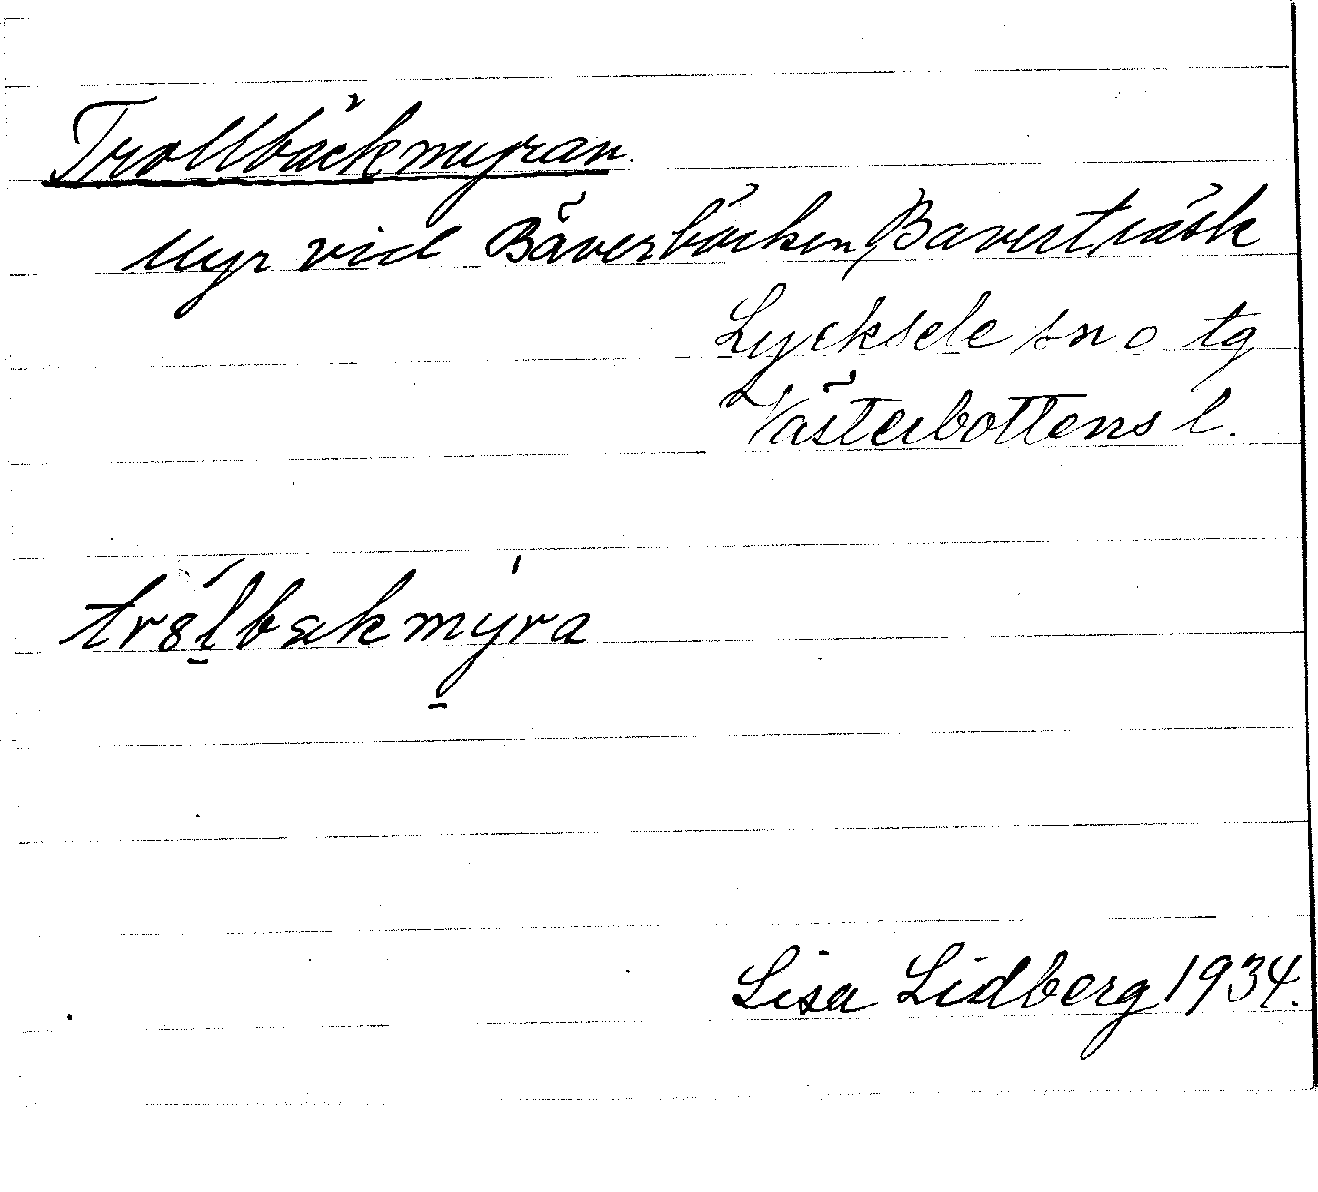 Trollbäckmyran.
Myr vid Bäverbäcken, Baverträsk
Lycksele sn o tg
Västerbottens l.
Lisa Lidberg 1934.